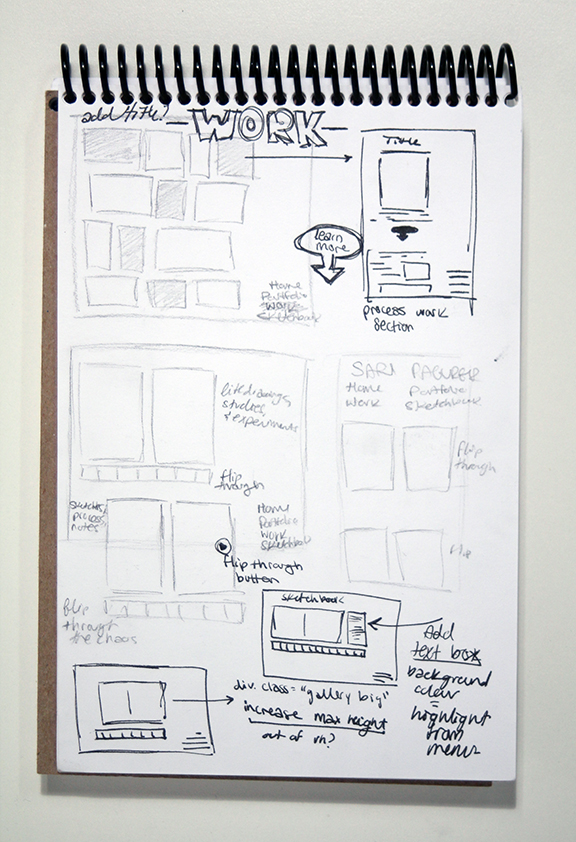 add title?
-WORK-
Title
learn
more
Home
Portfolio
Work
Sketchbook
process work
section
life drawings,
studies,
& experiments
flip
through
SARI
Home Portfolio
Work Sketchbook
flip
through
flip
sketches,
process,
notes
Home
Portfolio
Work
Sketchbook
flip through
button
flip
through
the chaos
sketchbook
Add
text box
background
color
=
highlight
from
menu
div. class= "gallery big"
increase max height
out of vh?